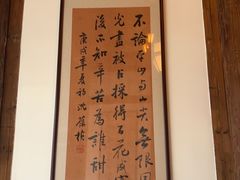 不論平地与山尖無限風
光盡被占採得百花成蜜
後不知辛苦為誰甜
庚戌